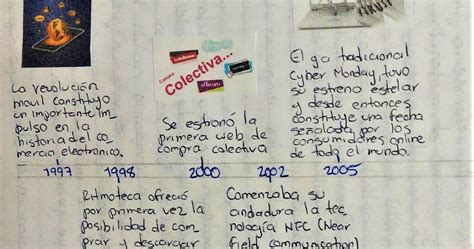 La revolución
movil constituyo
un importante Im_
pulso en la
historia del co_
mercio electronico.
Colectiva...
offerum
Se estronó la
primera web de
compra colectiva
El ya tradicional
Cyber Monday, tuvo
su estreno estelar
y desde entonces
constituye una fecha
señalada por los
consumidores online
de todo el mundo.
1997 1998 2000 2002 2005
Ritmoteca ofreció
por primera vez la
posibilidad de com_
prar y descargar
Comenzaba su
andadura la tec_
nología NFC (Near
field communication)